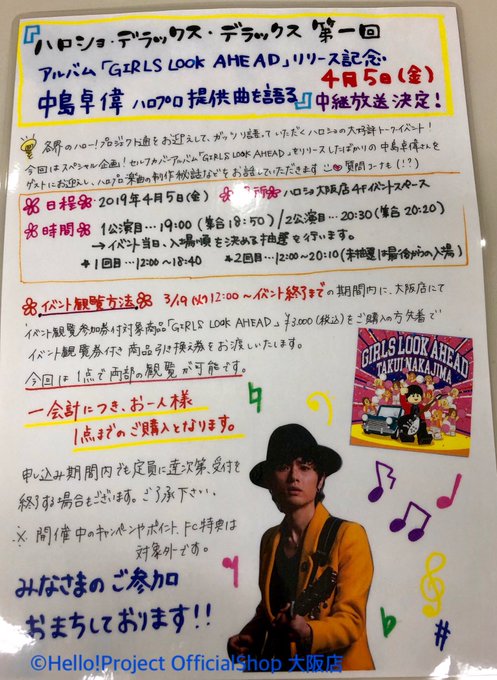 『ハロショ・デラックス・デラックス 第一回
アルバム「GIRLS LOOK AHEAD」リリース記念
中島卓偉 ハロプロ提供曲を語る』
4月5日(金)
中継放送決定!
各界のハロー!プロジェクト通をお迎えして、ガッツリ語っていただくハロショの大好評トークイベント!
今回はスペシャル企画!セルフカバーアルバム「GIRLS LOOK AHEAD」をリリースしたばかりの中島卓偉さんを
ゲストにお迎えし、ハロプロ楽曲の制作秘話などをお話していただきます 質問コーナーも(!?)
日程:2019年4月5日(金) 場所:ハロショ大阪店4Fイベントスペース
時間:1公演目…19:00(集合18:50)/2公演目…20:30(集合20:20)
→イベント当日、入場順を決める抽選を行います。
*1回目…12:00~18:40 *2回目…12:00~20:10(未抽選は最後からの入場)
イベント観覧方法 3/19(火)12:00~イベント終了までの期間内に、大阪店にて
イベント観覧参加券付対象商品「GIRLS LOOK AHEAD」¥3,000(税込)をご購入の方先着で
イベント観覧券付き商品引き換え券をお渡しいたします。
今回は1点で両部の観覧が可能です。
一会計につき、お一人様
1点までのご購入となります。
GIRLS LOOK AHEAD
TAKUI NAKAJIMA
申し込み期間内でも定員に達次第、受付を
終了する場合もございます。ご了承下さい。
※開催中のキャンペーンやポイント、FC特典は
対象外です。
みなさまのご参加
おまちしております!!
©Hello!Project OfficialShop 大阪店